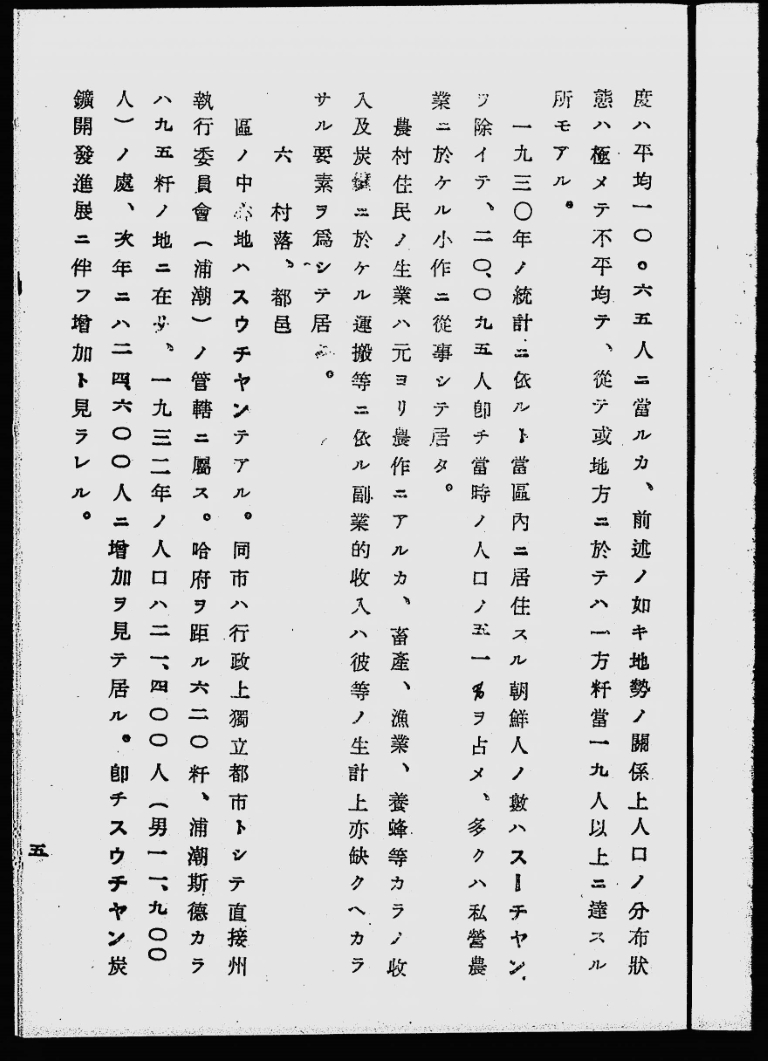 度ハ平均一〇。六五人ニ當ルカ、前述ノ如キ地勢ノ關係上人口ノ分布狀
態ハ極メテ不平均テ、從テ或地方ニ於テハ一方粁當一九人以上ニ達スル
所モアル。
一九三〇年ノ統計ニ依ルト當區內ニ居住スル朝鮮人ノ數ハスーチヤン
ヲ除イテ、二〇、〇九五人卽チ當時ノ人口ノ五一%ヲ占メ、多クハ私營農
業ニ於ケル小作ニ從事シテ居タ。
農村住民ノ生業ハ元ヨリ農作ニアルカ、畜產、漁業、養蜂等カラノ收
入及炭鑛ニ於ケル運搬等ニ依ル副業的收入ハ彼等ノ生計上亦缺クヘカラ
サル要素ヲ爲シテ居。
六 村落、都邑
區ノ中地ハスウチヤンテアル。同市ハ行政上獨立都市トシテ直接州
執行委員會(浦潮)ノ管轄ニ屬ス。哈府ヲ距ル六二〇粁、浦潮斯德カラ
ハ九五粁ノ地ニ在リ、一九三二年ノ人口ハ二一、四〇〇人(男一一、九〇〇
人)ノ處、次年ニハ二四、六〇〇人ニ增加ヲ見テ居ル。卽チスウチヤン炭
鑛開發進展ニ伴フ增加ト見ラレル。
五